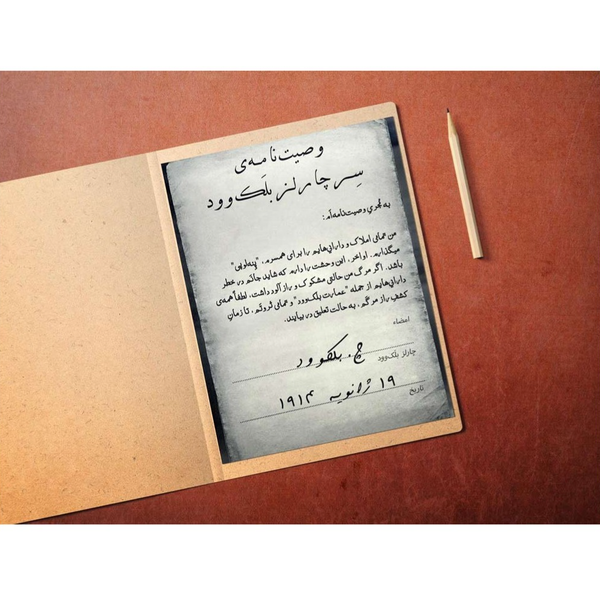 وصیت‌نامه‌ی
سِر چارلز بلَک‌وود
به مجریِ وصیت‌نامه‌ام:
من تمامی املاک و دارایی‌هایم را برای همسرم، "پنه‌لوپی"
میگذارم. اواخر، این وحشت را دارم که شاید جانم در خطر
باشد. اگر مرگ من حالتی مشکوک و رازآلود داشت، لطفاً همه‌ی
دارایی‌هایم از جمله "عمارت بلک‌وود" و تمامی ثروتم، تا زمانِ
کشفِ راز مرگم، به حالت تعلیق در بیایند.
امضاء
چ. بلکوود
چارلز بلک‌وود
۱۹ ژانویه ۱۹۱۴
تاریخ